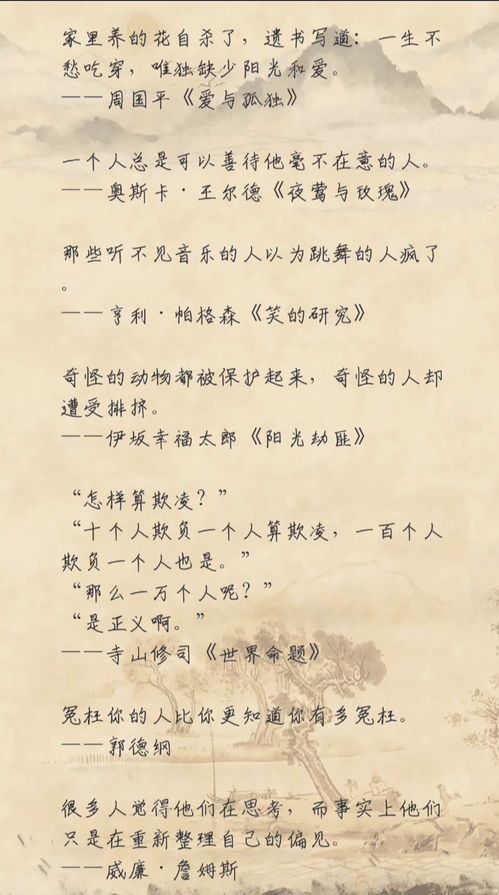 家里养的花自杀了，遗书写道：一生不
愁吃穿，唯独缺少阳光和爱。
——周国平《爱与孤独》
一个人总是可以善待他毫不在意的人。
——奥斯卡·王尔德《夜莺与玫瑰》
那些听不见音乐的人以为跳舞的人疯了
。
——亨利·帕格森《笑的研究》
奇怪的动物都被保护起来，奇怪的人却
遭受排挤。
——伊坂幸福太郎《阳光劫匪》
“怎样算欺凌？”
“十个人欺负一个人算欺凌，一百个人
欺负一个人也是。”
“那么一万个人呢？”
“是正义啊。”
——寺山修司《世界命题》
冤枉你的人比你更知道你有多冤枉。
——郭德纲
很多人觉得他们在思考，而事实上他们
只是在重新整理自己的偏见。
——威廉·詹姆斯